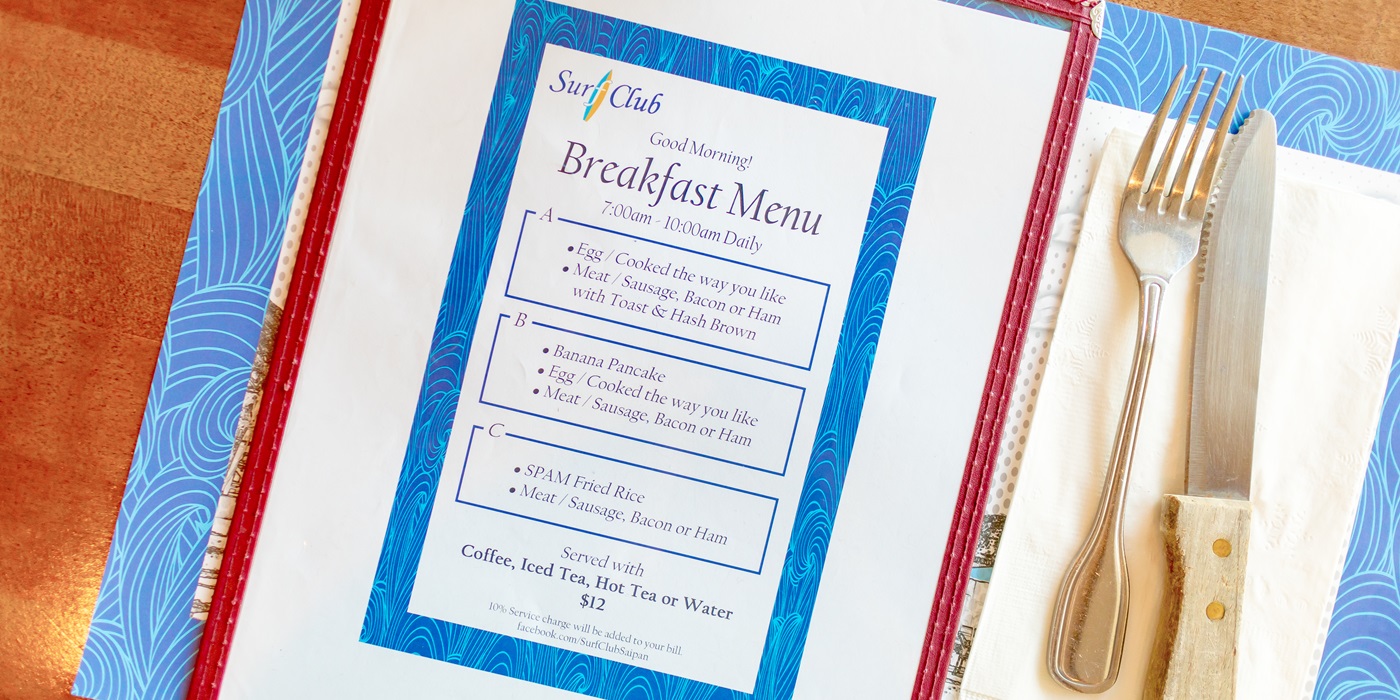 Surf Club
Good Morning!
Breakfast Menu
7:00am - 10:00am Daily
A
• Egg / Cooked the way you like
• Meat / Sausage, Bacon or Ham
with Toast & Hash Brown
B
• Banana Pancake
• Egg / Cooked the way you like
• Meat / Sausage, Bacon or Ham
C
• SPAM Fried Rice
• Meat / Sausage, Bacon or Ham
Served with
Coffee, Iced Tea, Hot Tea or Water
$12
10% Service charge will be added to your bill.
facebook.com/SurfClubSaipan